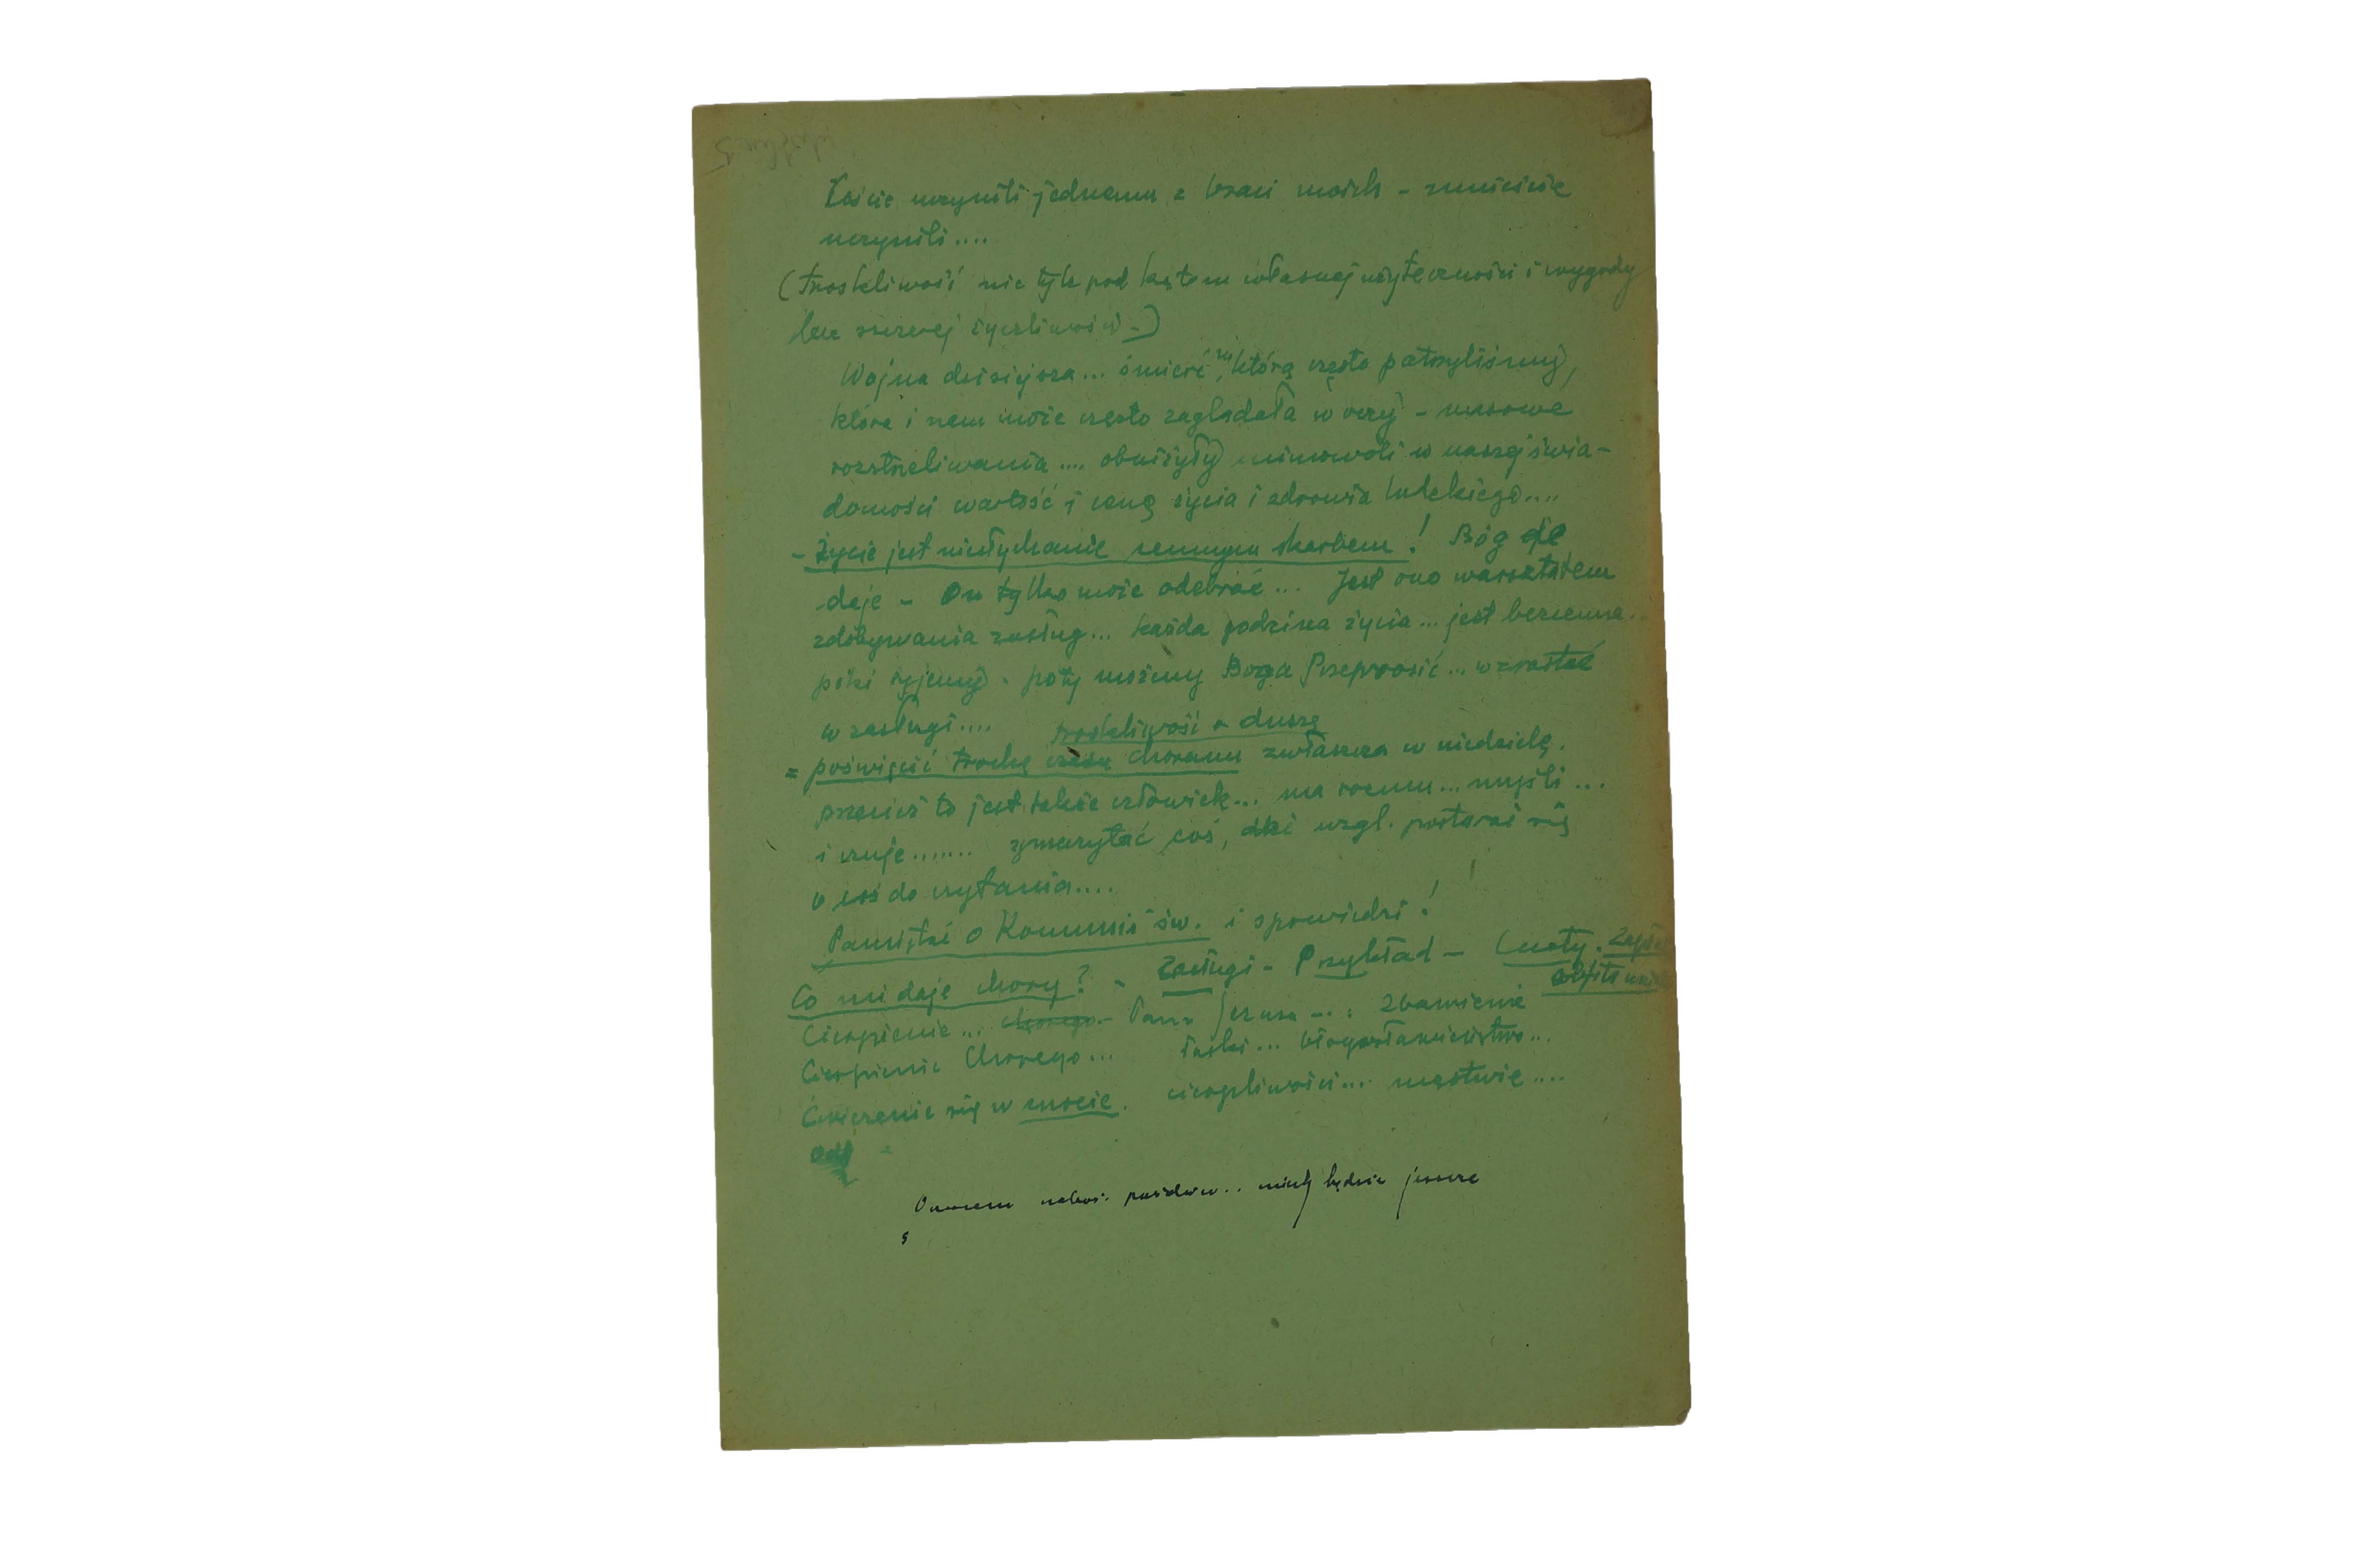 Coście uczynili jednemu z braci moich - mnieście
uczynili....
(troskliwość nie tylk pod kątem własnej użyteczności i wygody
lecz szczerej życzliwości -)
Wojna dzisiejsza... śmierć, na którą często patrzyliśmy,
która i nam może często zaglądała w oczy - masowe
rozstrzeliwania.... obniżyły mimowoli w naszej świa-
domości wartość i cenę życia i zdrowia ludzkiego....
- Życie jest niesłychanie cennym skarbem! Bóg je
daje - On tylko może odebrać... Jest ono warsztatem
zdobywania zasług... każda godzina życia... jest bezcenna..
póki żyjemy - poty możemy Boga Przeprosić... wzrastać
w zasługi....
troskliwość o duszę
= poświęcić trochę czasu choremu zwłaszcza w niedzielę.
przecież to jest także człowiek... ma rozum... myśli...
i czuje....... coś, dać wzgl. postarać się
o coś do czytania....
Pamiętać o Komunii św. i spowiedzi!
Co mi daje chory? - Zasługi - Przykład - Cnoty.
Cierpienie... Pana Jezusa...: zbawienie
Cierpienie Chorego... łaski... błogosławieństwo...
Ćwiczenie się w cnocie. cierpliwości... męstwie....
Owocem niech będzie jeszcze